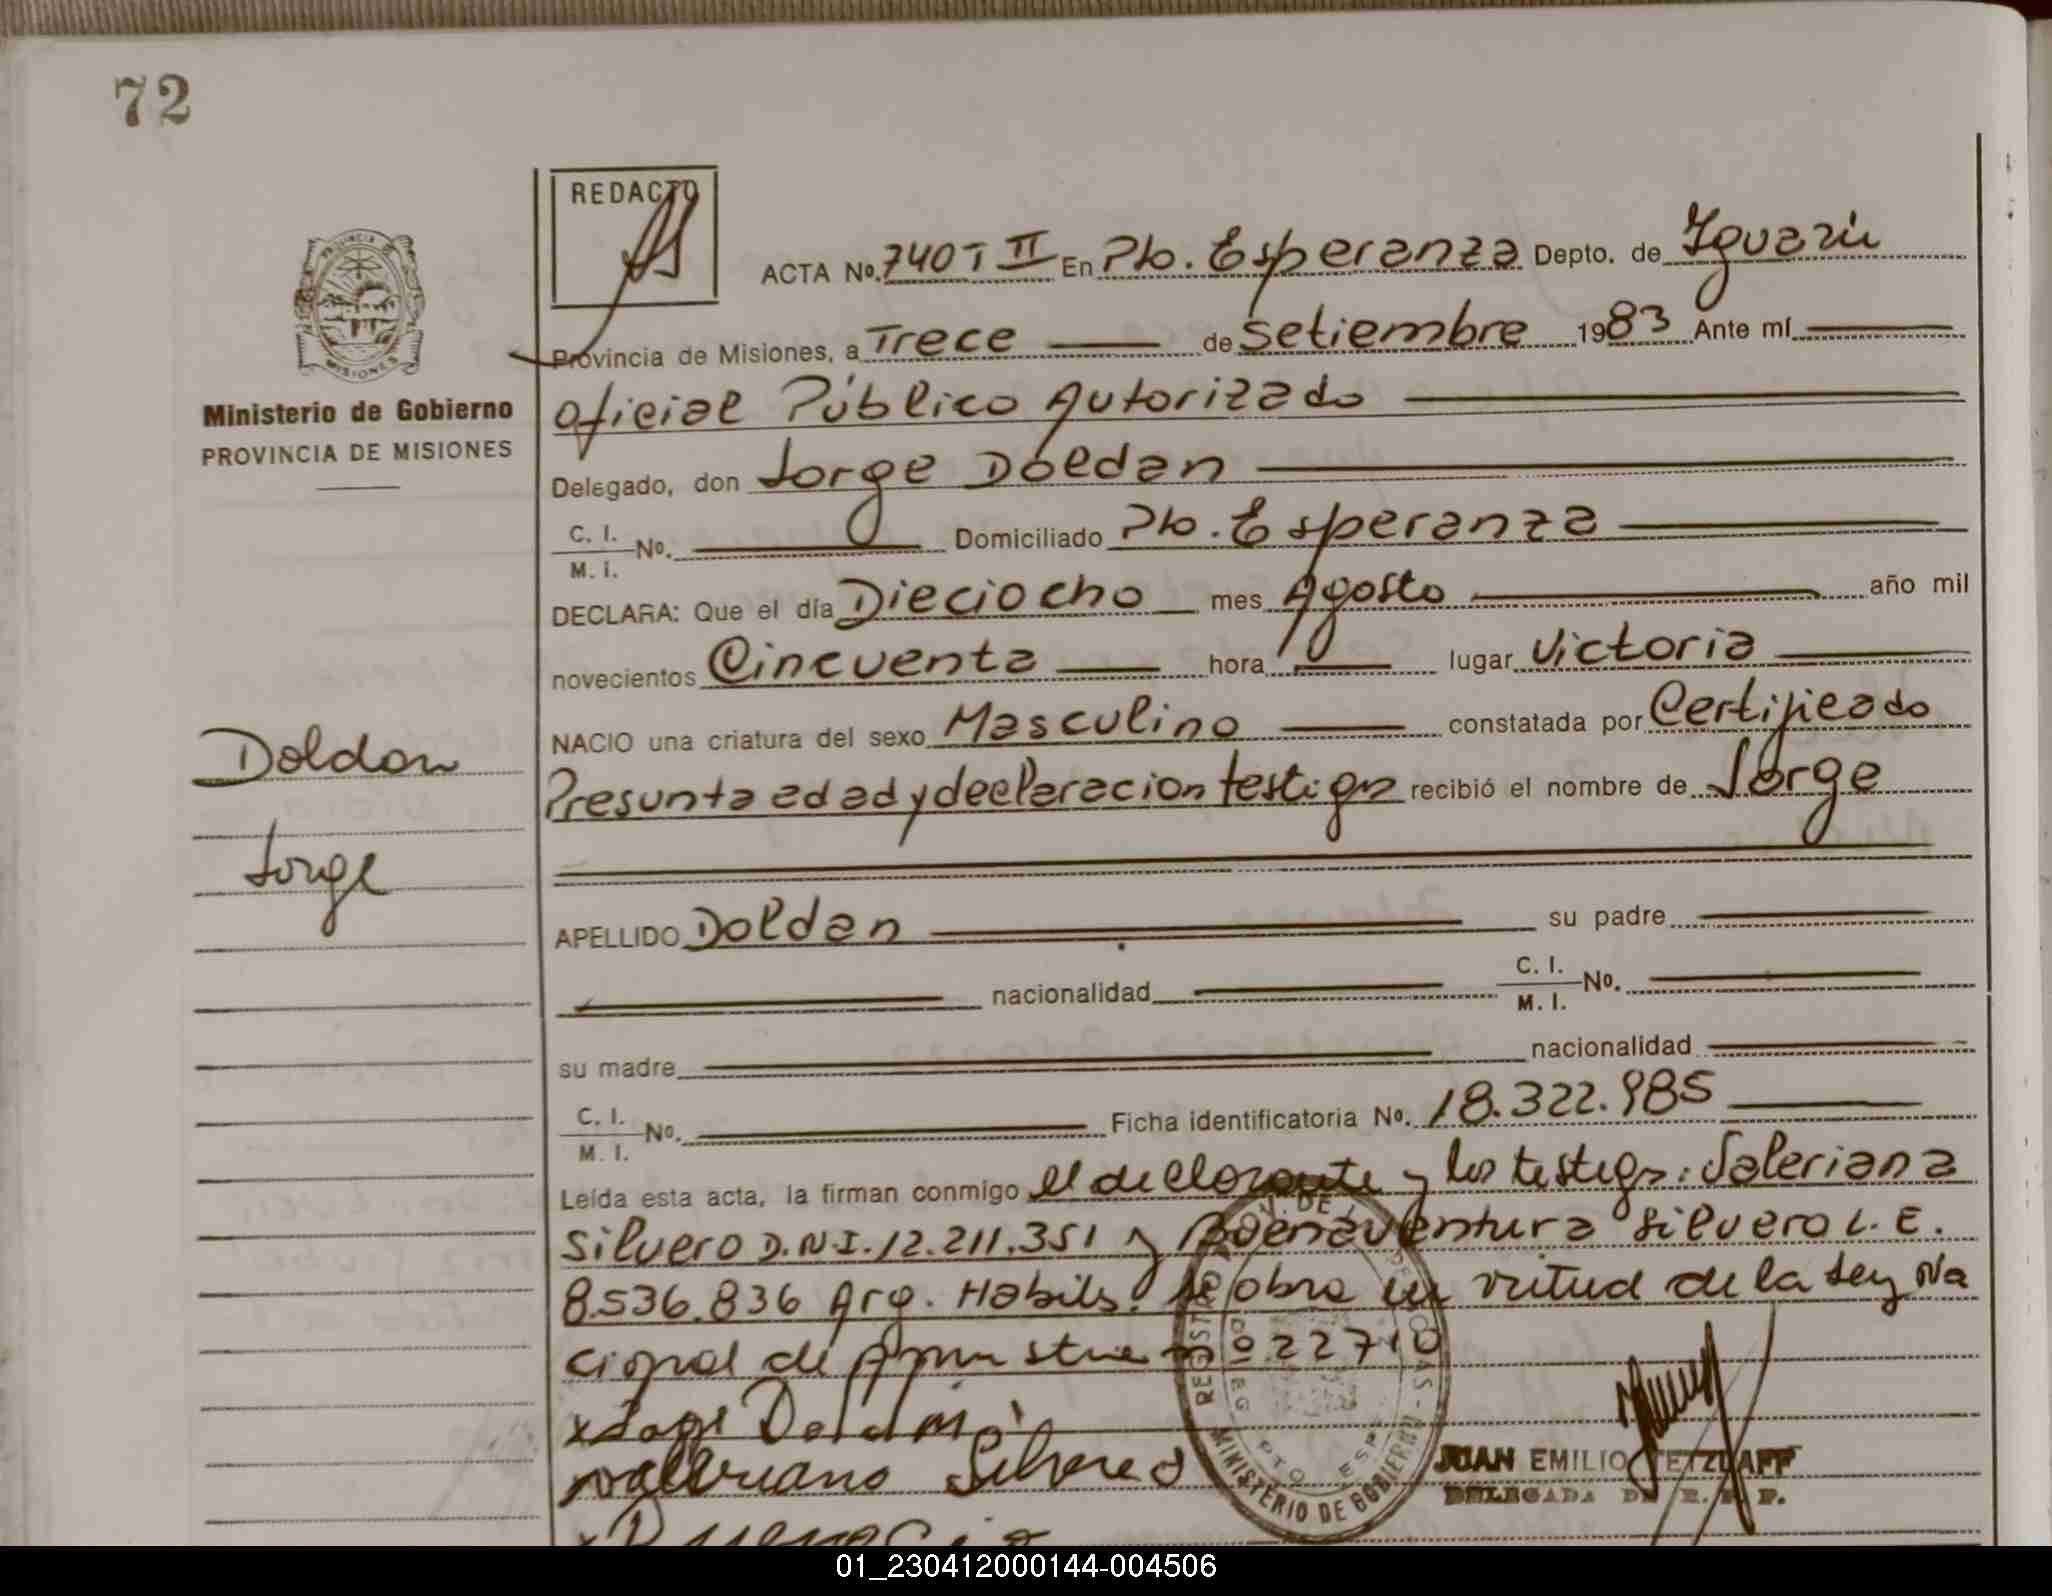 72
REDACTO
ACTA No. 740 T II En Pto. Esperanza Depto. de Iguazú
Provincia de Misiones, a Trece de Setiembre 1983 Ante mí
Oficial Público Autorizado
Ministerio de Gobierno
PROVINCIA DE MISIONES
Delegado, don Jorge Doldan
C. I.
M. I. No. Domiciliado Pto. Esperanza
DECLARA: Que el día Dieciocho mes Agosto año mil
novecientos Cincuenta hora lugar Victoria
NACIO una criatura del sexo Masculino constatada por Certificado
Presunta edad y declaracion testigos recibió el nombre de Jorge
Doldan
Jorge
APELLIDO Doldan su padre
nacionalidad C. I.
M. I. No.
su madre nacionalidad
C. I.
M. I. No. Ficha identificatoria No. 18.322.985
Leída esta acta, la firman conmigo el declarante y los testigos: Valeriana
Silvero D.N.I. 12.211.351 y Buenaventura Silvero L. E.
8.536.836 Arg. Habils. Se obra en virtud de la Ley Na
cional de 22710
Doldan
Valeriano Silvero
JUAN EMILIO TETZLAFF
DELEGADA DE R. P. P.
MISIONES
MINISTERIO DE GOBIERNO
01_230412000144-004506